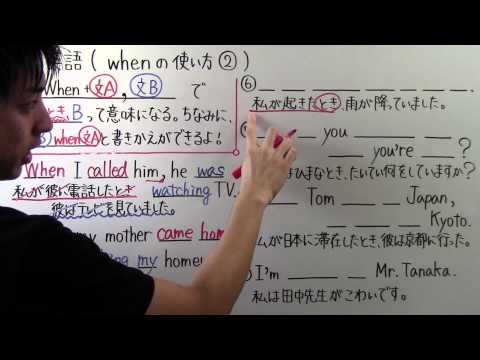 語(whenの使い方②)
When + 文A , 文B で
とき B って意味になる。ちなみに、
B when 文A と書きかえができるよ!
When I called him, he was
私が彼に電話したとき watching TV.
彼はテレビを見ていました。
my mother came home
my homew
⑥
私が起きたとき、雨が降っていました。
you
you're ?
ひまなとき、たいてい何をしていますか?
Tom Japan,
Kyoto.
が日本に滞在したとき、彼は京都に行った。
I'm Mr. Tanaka.
私は田中先生がこわいです。